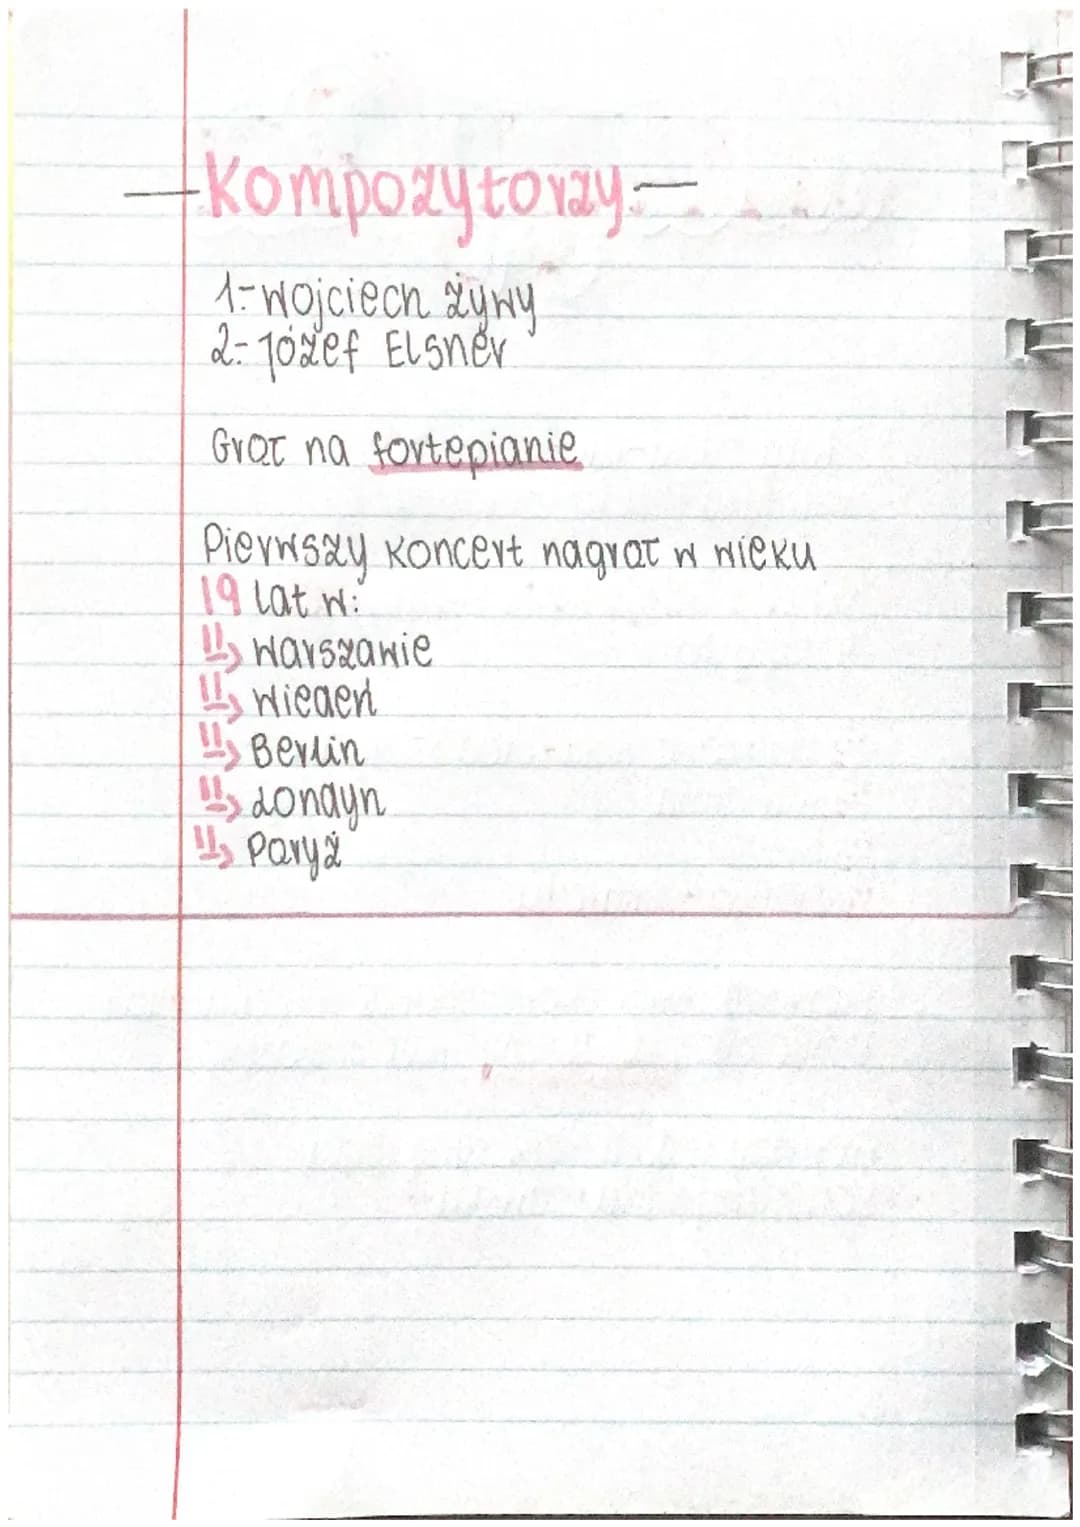 -Kompozytorzy-
1-Wojciech żywy
2-Józef Elsner
Grał na fortepianie
Pierwszy koncert nagrał w wieku
19 lat w:
Warszawie
Wiedeń
Berlin
Londyn
Paryż